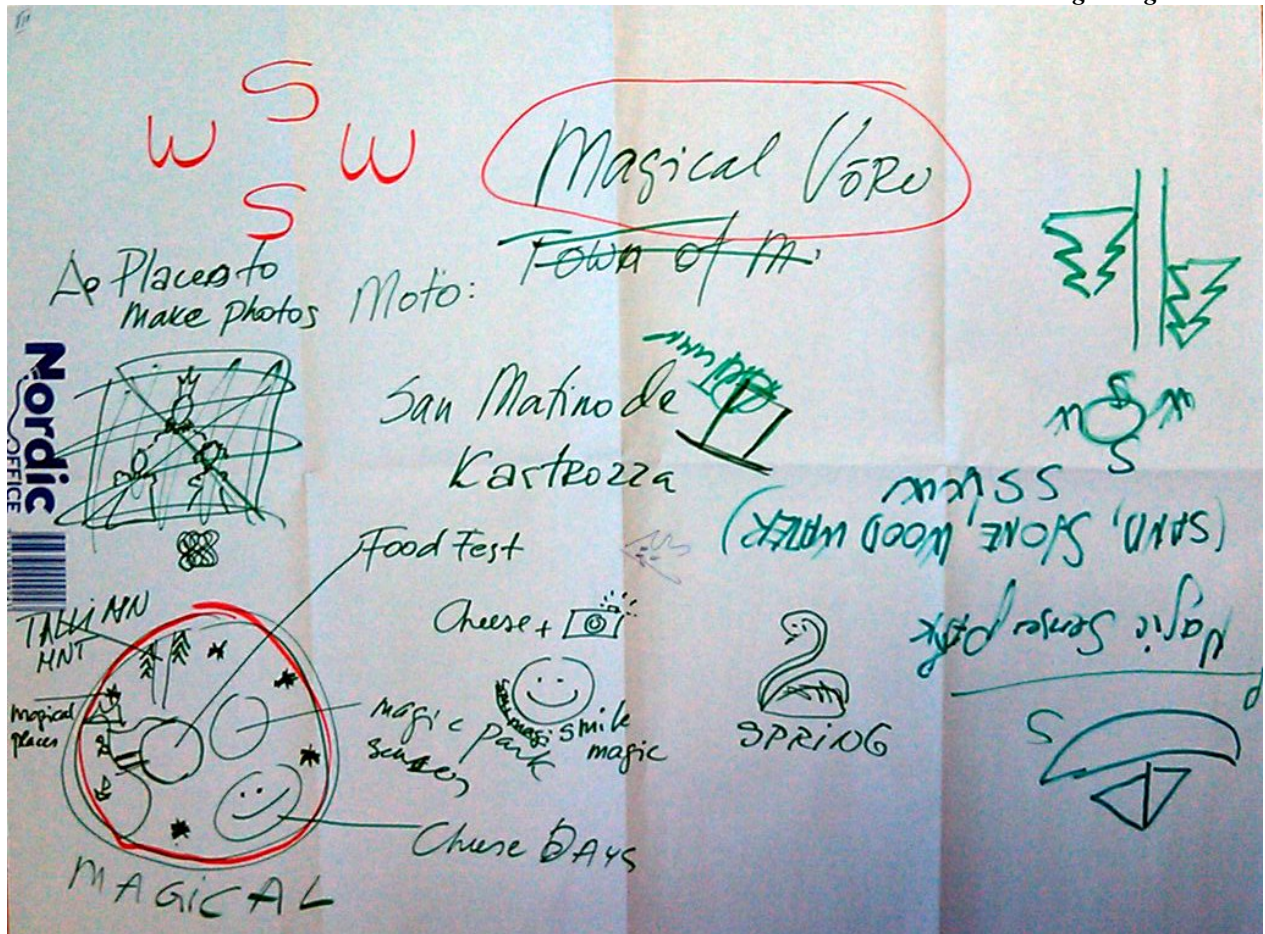 S
W W
S
Magical Võru
Town of m.
Places to
make photos
Moto:
San Matino de
Kastrozza
Nordic
OFFICE
Food Fest
Cheese +
TALLINN
MNT
magical
places
magic park
senses
smile
magic
Cheese DAYS
MAGICAL
SPRING
S
W W
S
SSWW
(SAND, STONE, WOOD WATER)
Magic Senses park
S